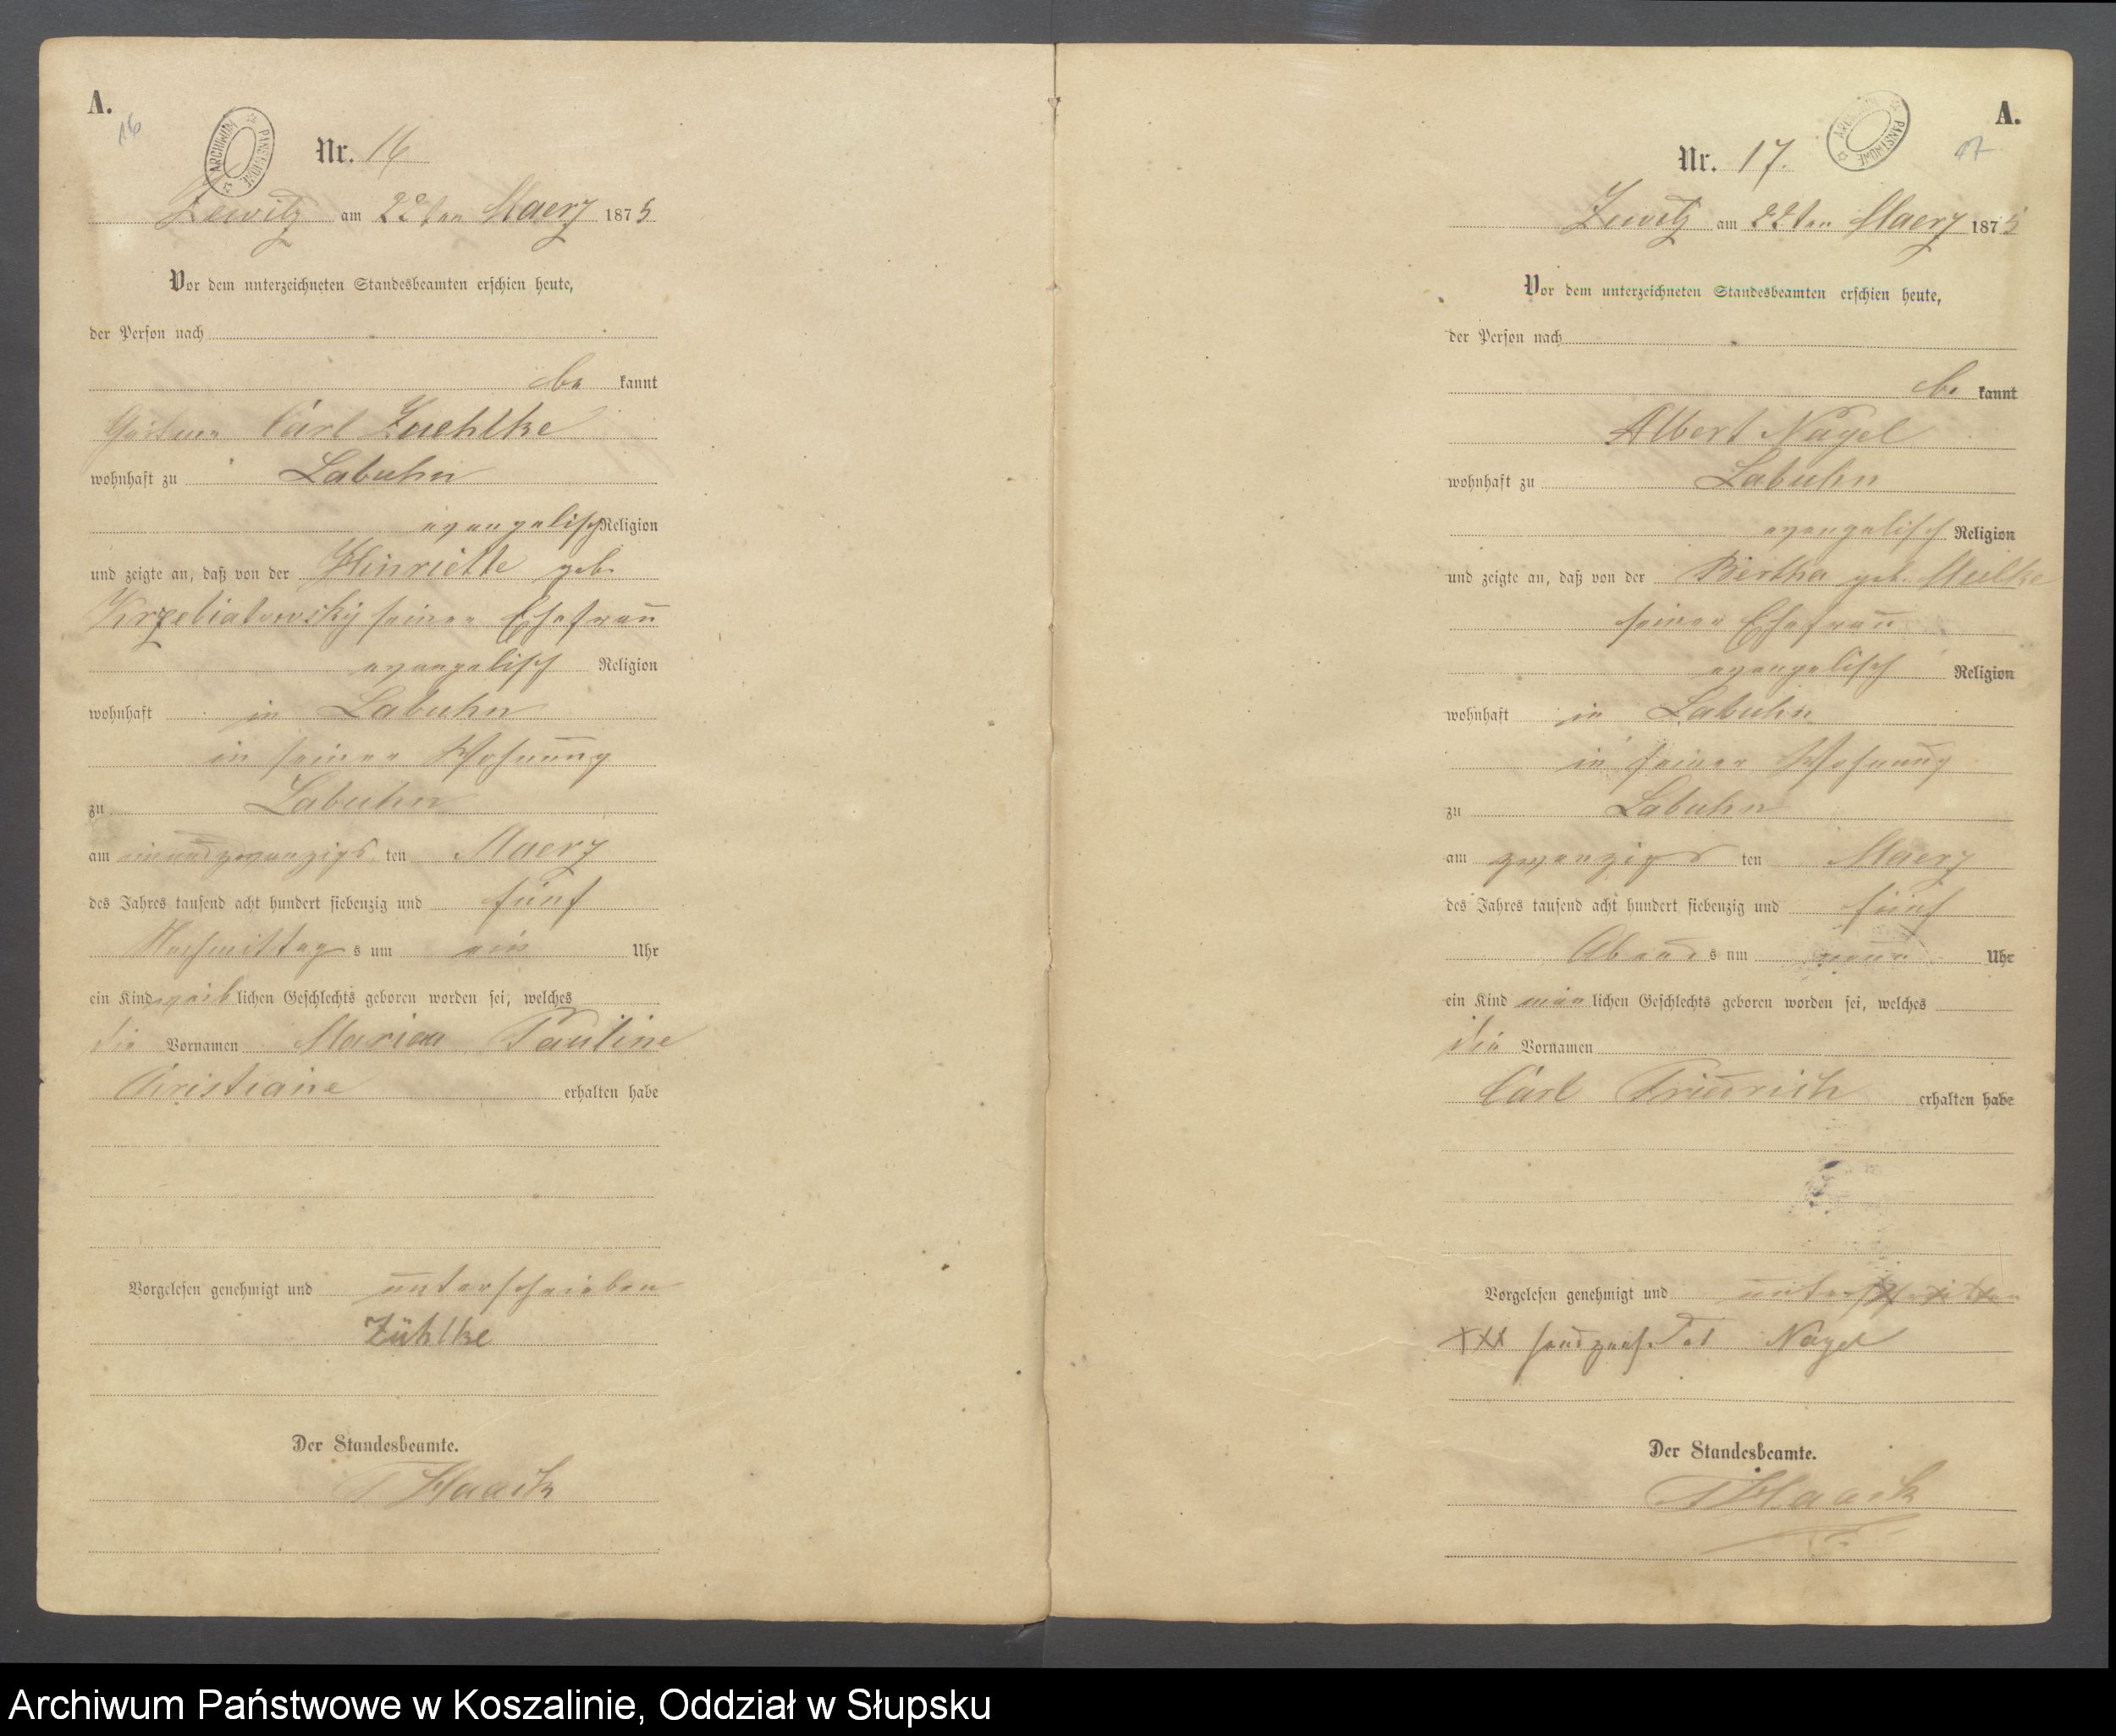 A.
16
ARCHIWUM PAŃSTWOWE
Nr. 16
Zewitz am 22ten Maerz 1875
Vor dem unterzeichneten Standesbeamten erschien heute,
der Person nach
be kannt
Carl Zuehlke
wohnhaft zu Labuhn
evangelisch Religion
und zeigte an, daß von der Hinriette geb.
Krzebiatowsky seiner Ehefrau
evangelisch Religion
wohnhaft in Labuhn
in seiner Wohnung
zu Labuhn
am einundzwanzigs ten Maerz
des Jahres tausend acht hundert siebenzig und fünf
Nachmittag s um ein Uhr
ein Kind weib lichen Geschlechts geboren worden sei, welches
die Vornamen Pauline
Christiane erhalten habe
Vorgelesen genehmigt und unterschrieben
Zühlke
Der Standesbeamte.
Haack
A.
17
ARCHIWUM PAŃSTWOWE
Nr. 17.
Zewitz am 22ten Maerz 1875
Vor dem unterzeichneten Standesbeamten erschien heute,
der Person nach
be kannt
Albert Nagel
wohnhaft zu Labuhn
evangelisch Religion
und zeigte an, daß von der Bertha geb.
seiner Ehefrau
evangelisch Religion
wohnhaft in Labuhn
in seiner Wohnung
zu Labuhn
am zwanzigs ten Maerz
des Jahres tausend acht hundert siebenzig und fünf
Abend s um neun Uhr
ein Kind män lichen Geschlechts geboren worden sei, welches
die Vornamen
Carl Friedrich erhalten habe
Vorgelesen genehmigt und
XXX Nagel
Der Standesbeamte.
Haack
Archiwum Państwowe w Koszalinie, Oddział w Słupsku